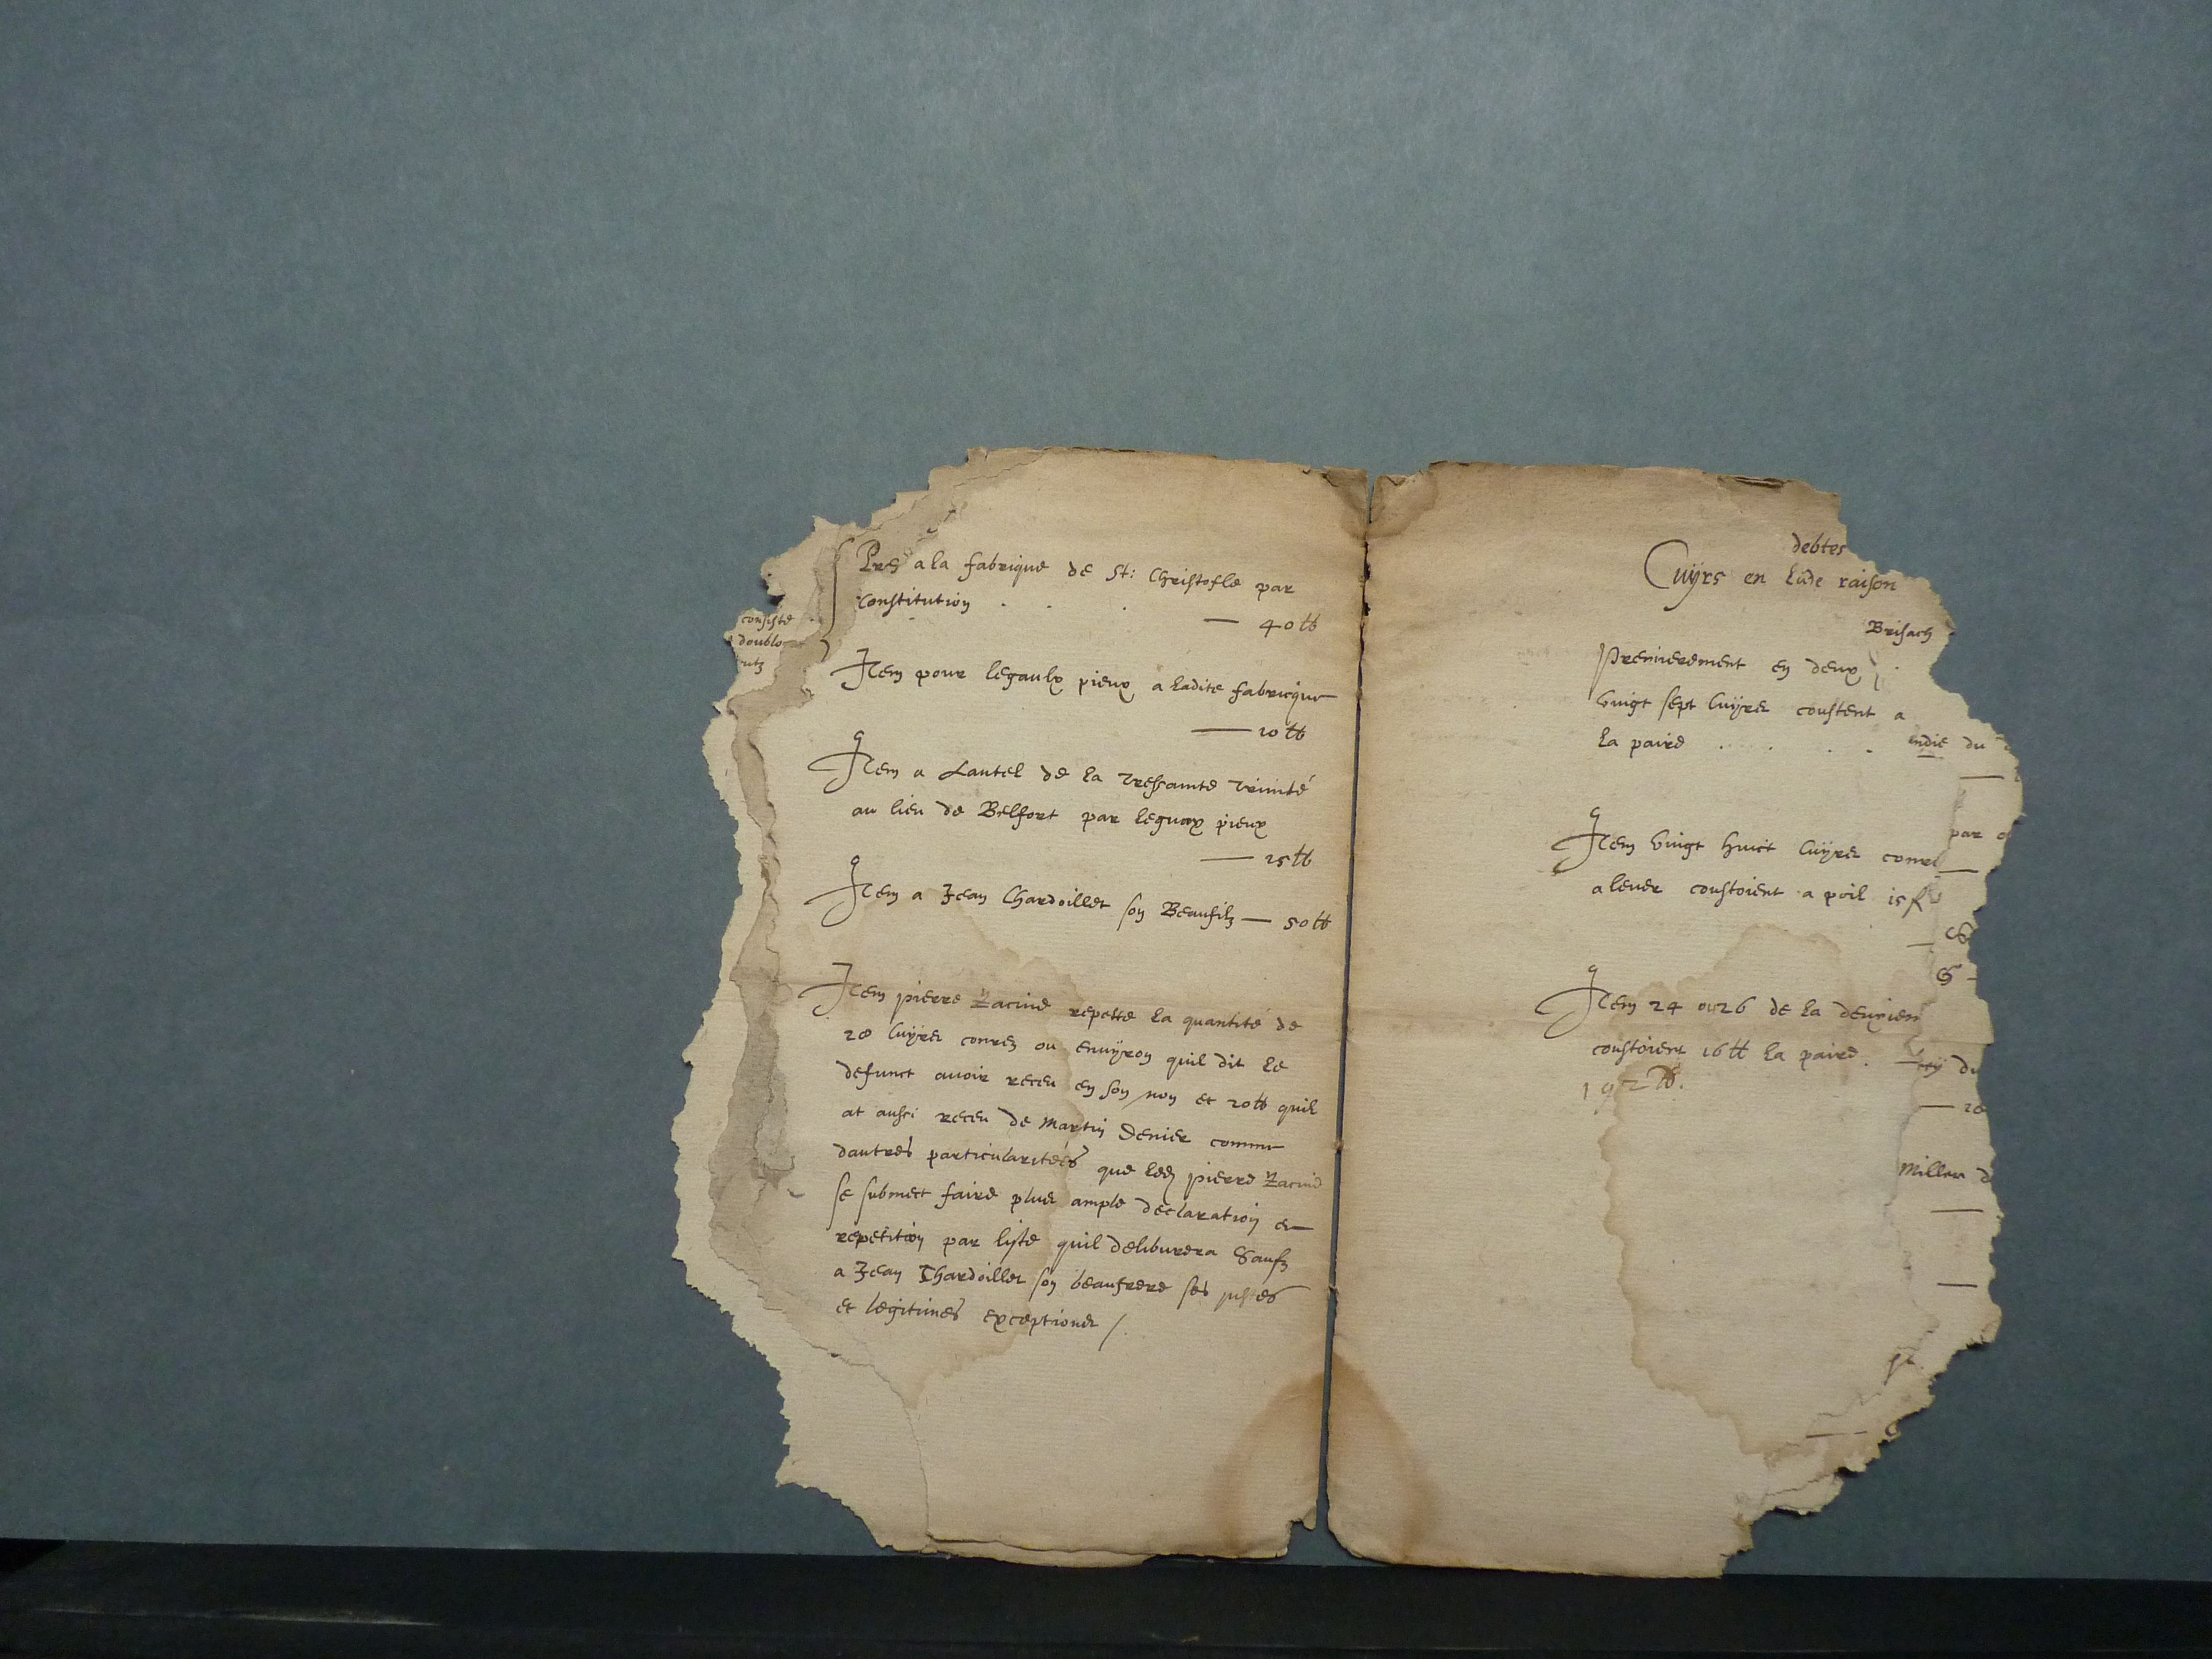 Pres a la fabrique de St: Christofle par
Constitution . . . — 40 ℔
consiste
double
utz
Item pour legaulx pieux a ladite fabricque
— 10 ℔
Item a Lautel de la tressainte trinité
au lieu de Belfort par leguax pieux
— 15 ℔
Item a Jean Chardoillet son Beaufilz — 50 ℔
Item pierre Zacine repette la quantité de
28 Cuÿrs conrez ou enuÿron quil dit le
defunct auoir receu en son non et 20 ℔ quil
at aussi receu de Martin Denier comme
dautres particularitées que led. pierre Zacine
se submect faire plus ample declaration et
repetition par liste quil deliburera Saufz
a Jean Chardoillet son beaufrere ses justes
et legitimes exceptions /.
debtes
Cuÿrs en Lade raison
Brisach
Premierement en deux
Vingt sept Cuÿrs coustent a
la paire . . . .
endie du
Item Vingt huict Cuÿrs
par
a leuer coustoient a poil 15
Item 24 ou 26 de la deuxiem
coustoient 16 ℔ la paire.
du
192 ℔.
— 20
Miller d